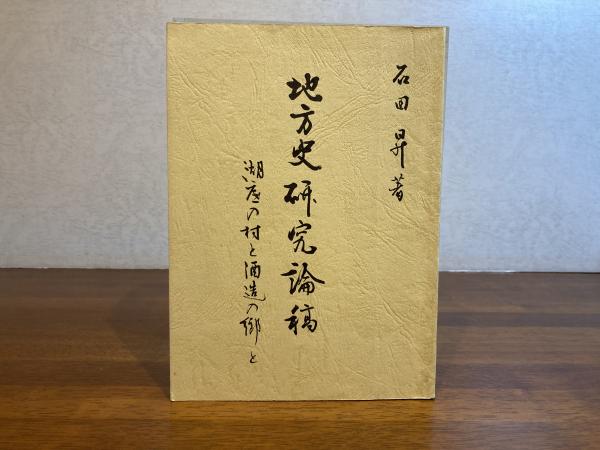 石田昇著
地方史研究論稿
湖底の村と酒造の郷と